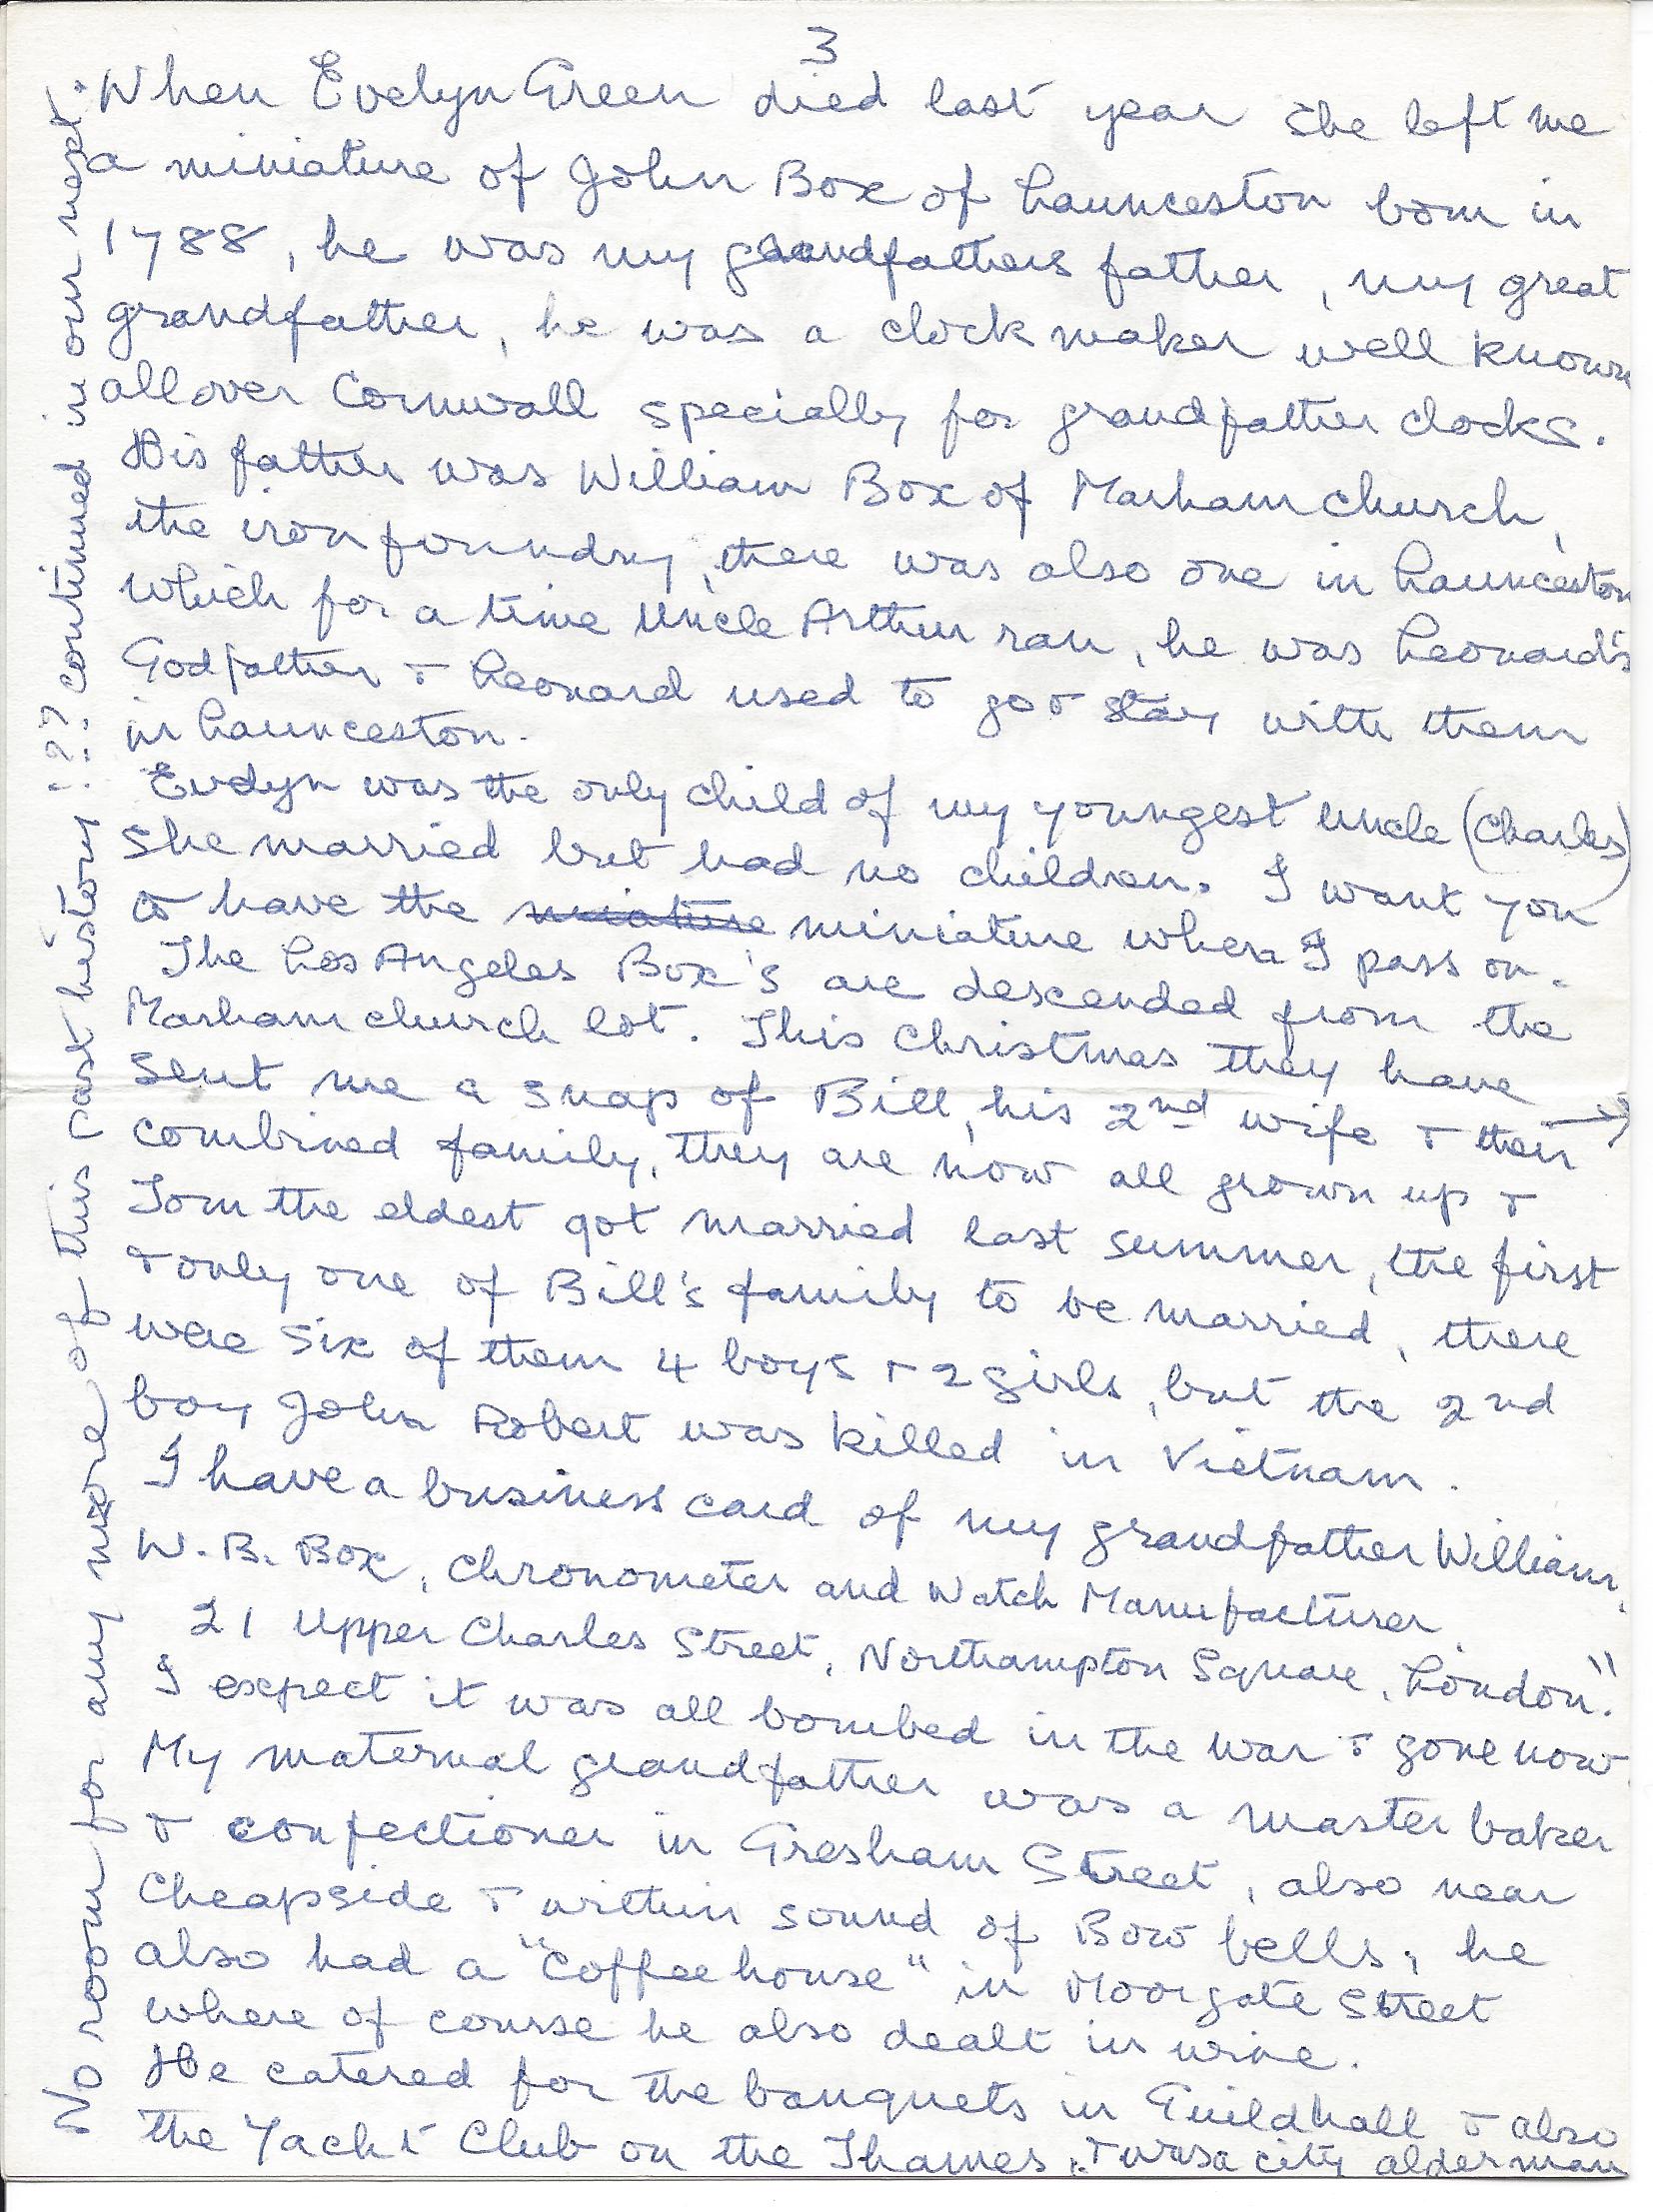 3
When Evelyn Green died last year she left me
a miniature of John Box of Launceston born in
1788, he was my grandfathers father, my great
grandfather, he was a clock maker well known
all over Cornwall specially for grandfather clocks.
His father was William Box of Marhamchurch,
the iron foundry, there was also one in Launceston
which for a time Uncle Arthur ran, he was Leonard's
Godfather & Leonard used to go & stay with them
in Launceston.
Evelyn was the only child of my youngest Uncle (Charles)
She married but had no children. I want you
to have the miniature when I pass on.
The Los Angeles Box's are descended from the
Marhamchurch lot. This Christmas they have
sent me a snap of Bill, his 2nd wife & their →
combined family, they are now all grown up &
Tom the eldest got married last summer, the first
& only one of Bill's family to be married, there
were six of them 4 boys & 2 girls, but the 2nd
boy John Robert was killed in Vietnam.
I have a business card of my grandfather William,
W. B. Box, Chronometer and Watch Manufacturer.
21 Upper Charles Street, Northampton Square, London."
I expect it was all bombed in the war & gone now.
My maternal grandfather was a master baker
& confectioner in Gresham Street, also near
Cheapside & within sound of Bow bells, he
also had a "Coffee house" in Moorgate Street
where of course he also dealt in wine.
He catered for the banquets in Guildhall & also
the Yacht Club on the Thames, & was a city alderman
No room for any more of this past history !?? continued in our next.